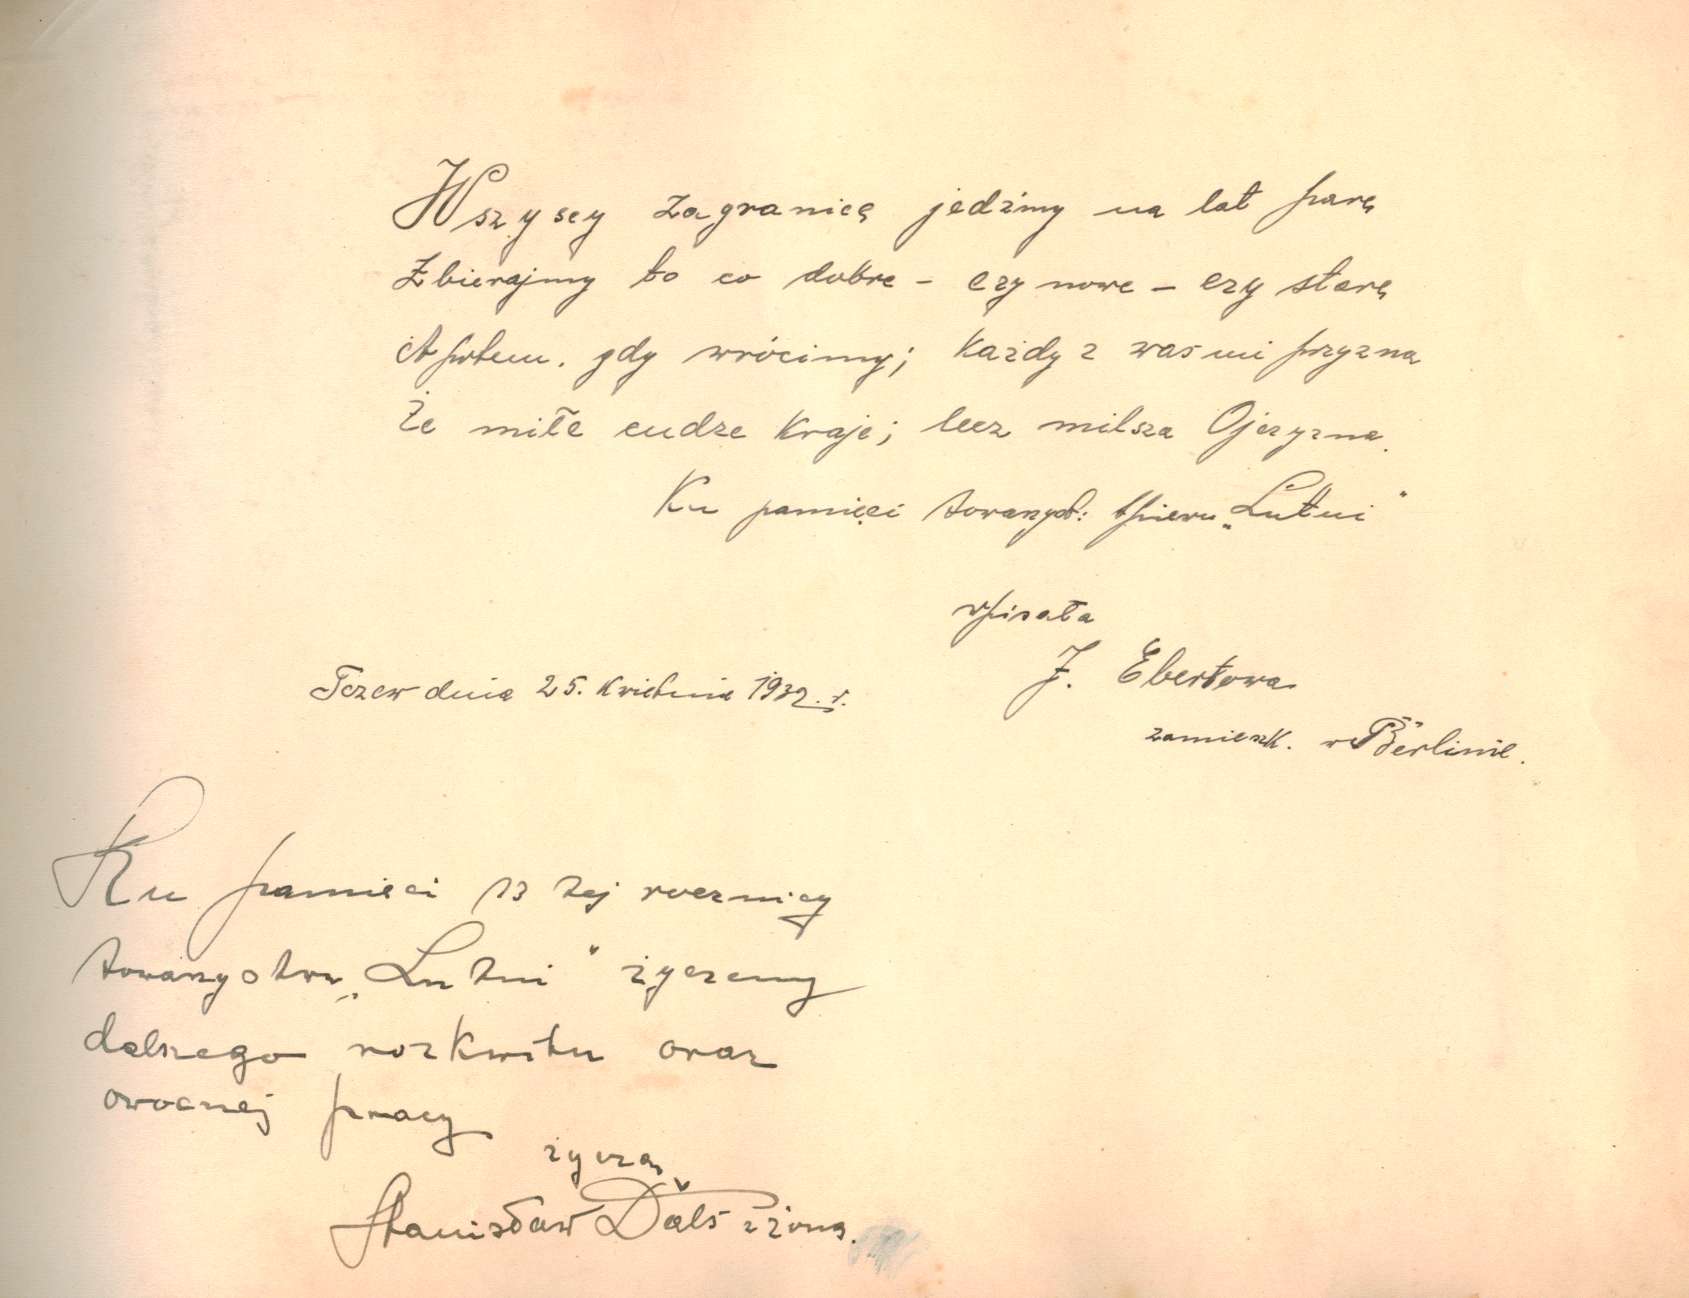 Wszyscy zagranicę jedźmy na lat parę
Zbierajmy to co dobre - czy nowe - czy stare
A potem. gdy wrócimy; każdy z was mi przyzna
Że miłe cudze kraje; lecz milsza Ojczyzna.
Ku pamięci towarzyst: śpiewu „Lutni"
wpisała
J. Ebertowa
Tczew dnia 25. kwietnia 1932. r.
zamieszk. w Berlinie.
Ku pamięci 13 tej rocznicy
towarzystwu „Lutni" życzemy
dalszego rozkwitu oraz
owocnej pracy
życzą
Stanisław z żoną.